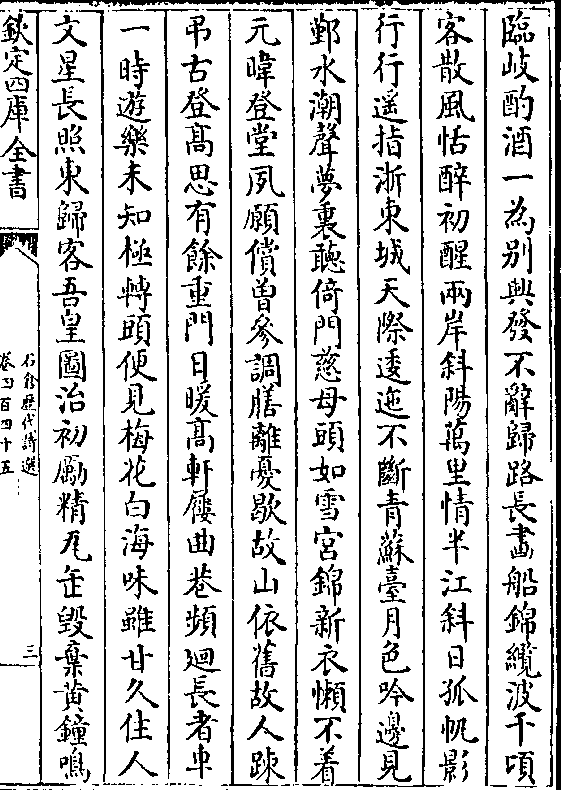 臨岐酌酒一為别興發不辭歸路長畫船錦纜波千頃
客散風恬醉初醒兩岸斜陽萬里情半江斜日孤帆影
行行遥指浙東城天際逶迤不斷青蘇臺月色吟邊見
鄞水潮聲夢裏聽倚門慈母頭如雪宫錦新衣懶不着
元暐登堂夙願償曾參調膳離憂歇故山依舊故人踈
弔古登髙思有餘重門日暖髙軒屨曲巷頻廻長者車
一時遊樂未知極轉頭便見梅花白海味雖甘久住人
文星長照東歸客吾皇圖治初勵精瓦缶毁棄黄鐘鳴
欽定四庫全書
石倉歴代詩選
卷四百四十五
三